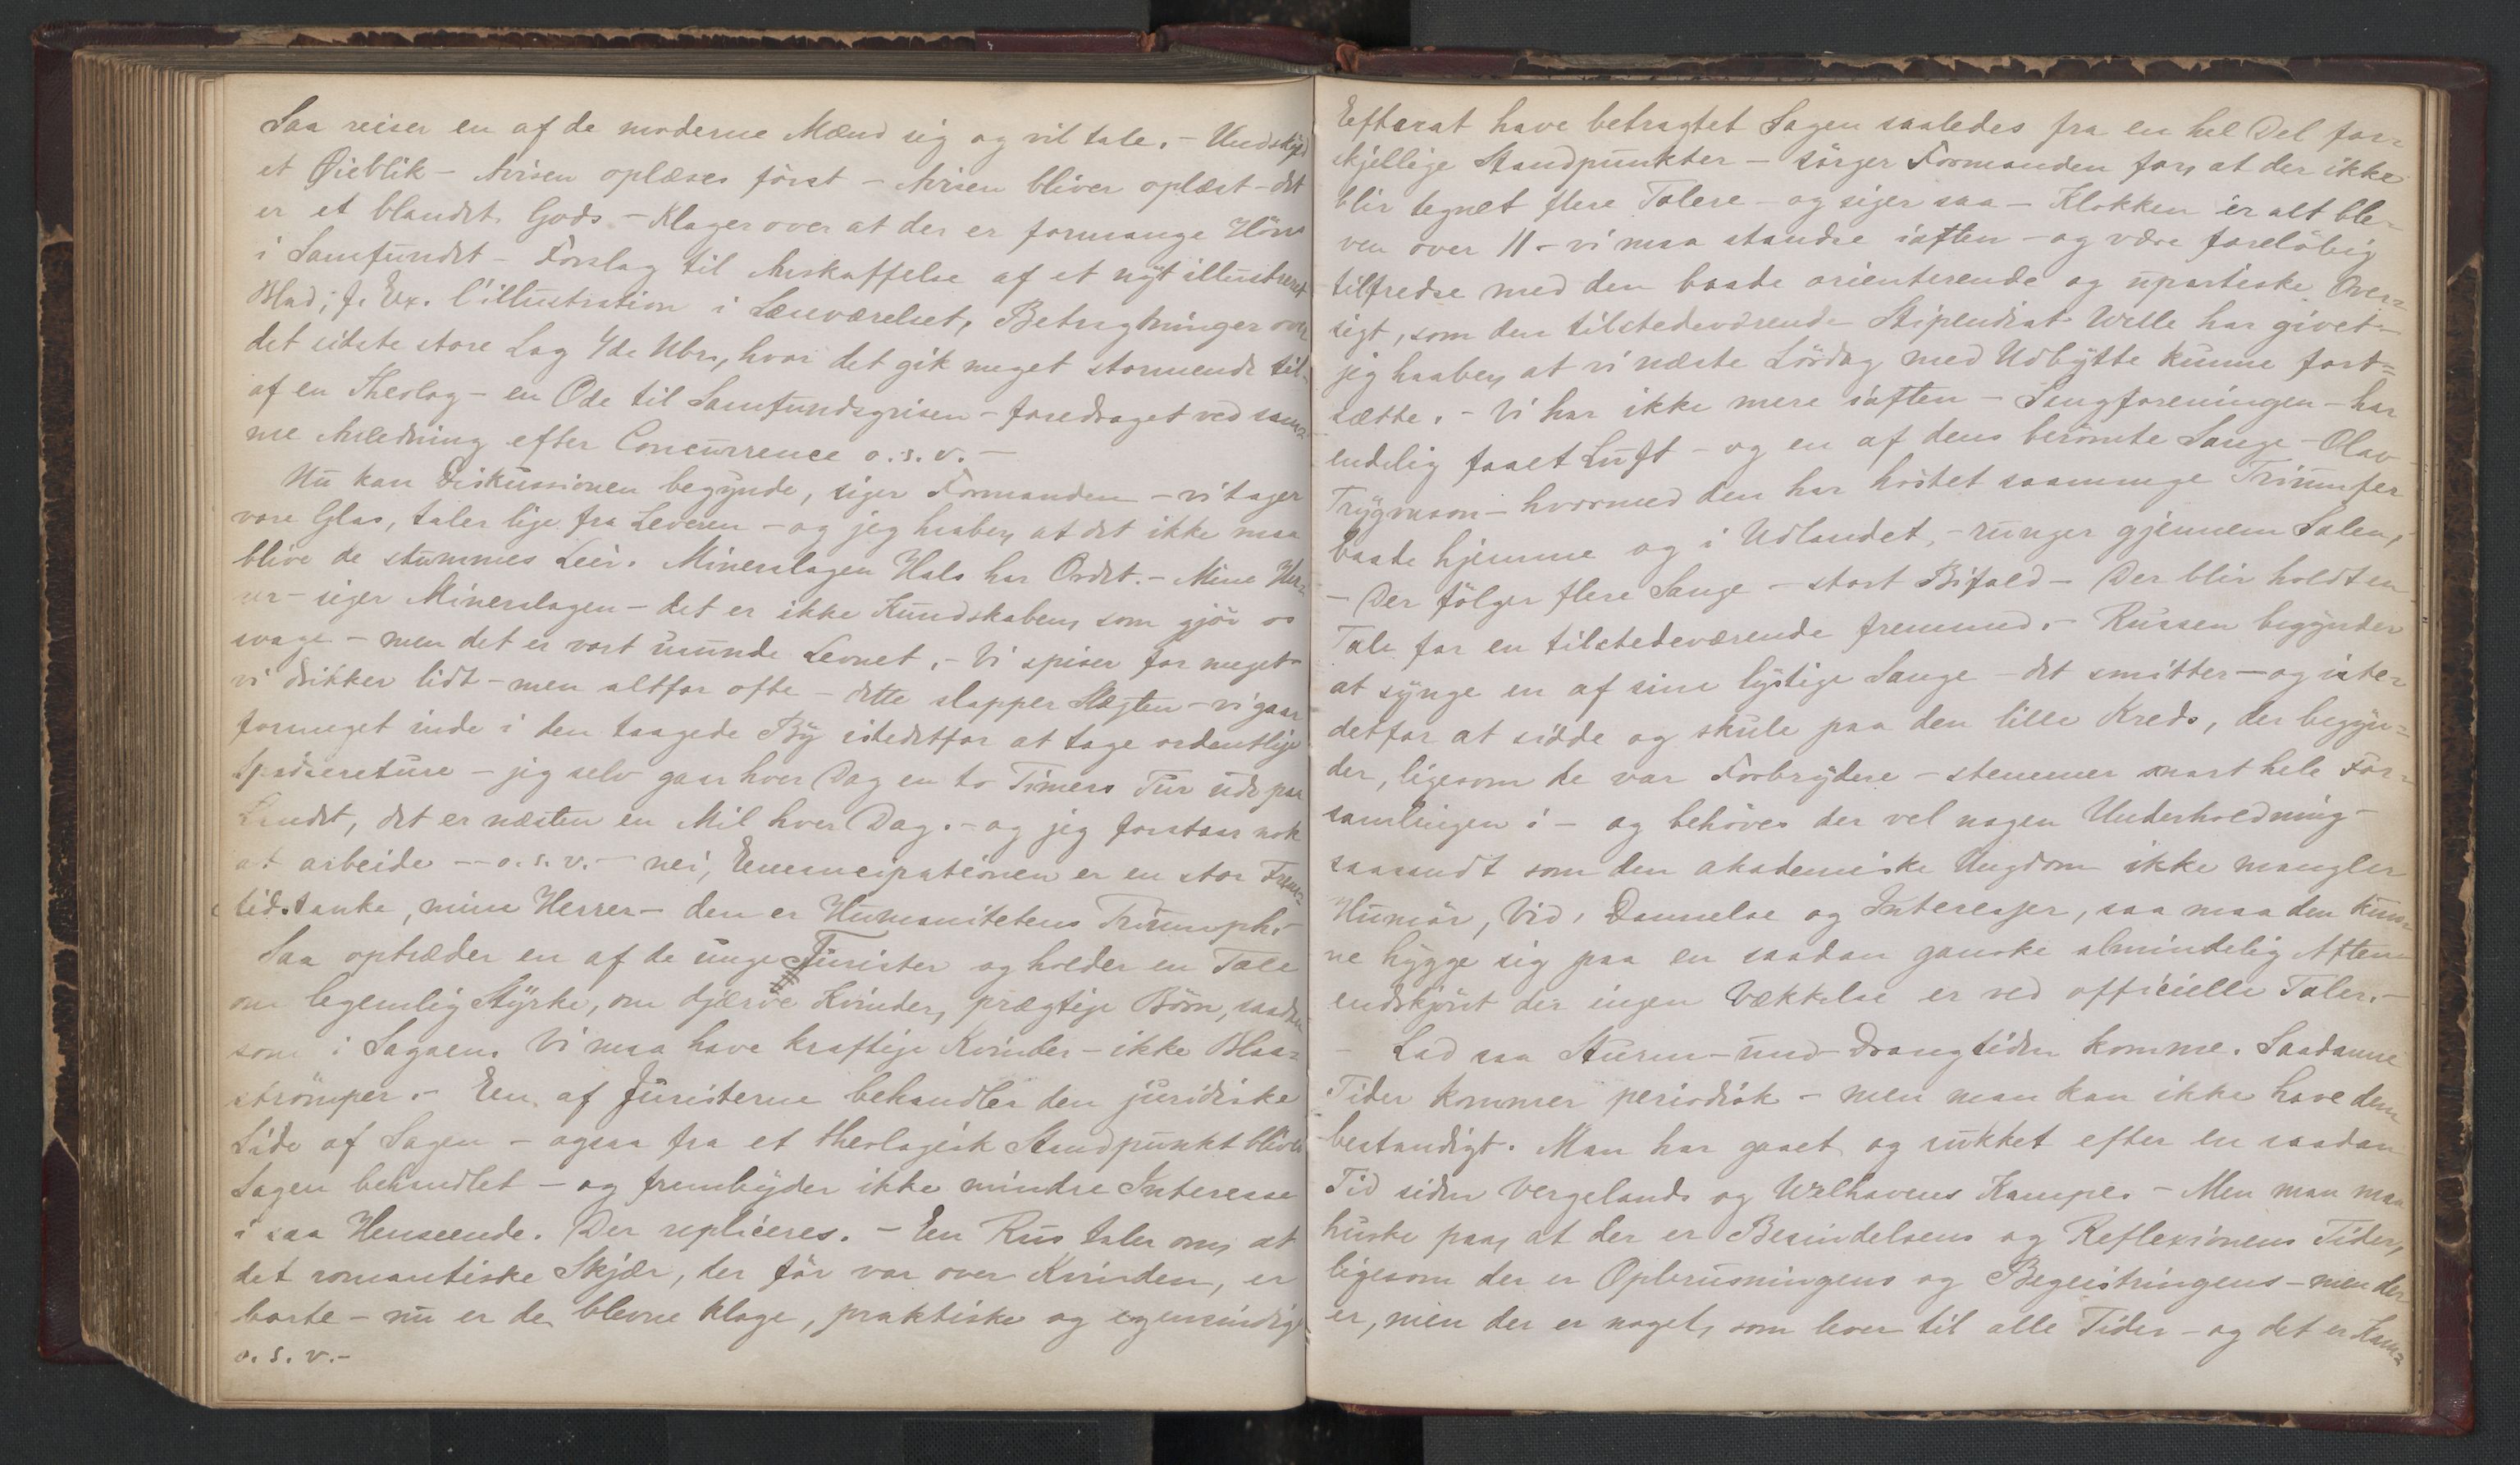 Saa reiser en af de moderne Mænd sig og vil tale. - Undskyld
et Øieblik - Avisen oplæses först - Avisen bliver oplæst - det
er et blandet Gods - Klager over at der er formange Höns
i Samfundet - Forslag til Anskaffelse af et nyt illustreret
Blad, f. Ex. l'illustration i Læseværelset, Betragtninger over
det sidste store Lag 4de Nbr., hvor det gik meget stormende til -
af en Theolog - en Ode til Samfundsgrisen - foredraget ved sam=
me Anledning efter Concurrence o.s.v. -
Nu kan Diskussionen begynde, siger Formanden - vi tager
vore Glas, taler lige fra Leveren - og jeg haaber, at det ikke maa
blive de stummes Leir. Mineralogen Hals har Ordet. - Mine Her=
rer - siger Mineralogen - det er ikke Kundskaben, som gjör os
svage - men det er vort usunde Levnet. - Vi spiser for meget -
vi drikker lidt - men altfor ofte - dette slapper Slægten - vi gaar
formeget inde i den taagede By istedetfor at tage ordentlige
Spadsereture - jeg selv gaar hver Dag en to Timers Tur ude paa
Landet, det er næsten en Mil hver Dag. - og jeg forstaar nok
at arbeide - o.s.v. - nei, Emancipationen er en stor Frem=
tidstanke, mine Herrer - den er Humanitetens Triumph. -
Saa optræder en af de unge Jurister og holder en Tale
om legemlig Styrke, om djærve Kvinder, prægtige Börn, saadan
som i Sagaen. Vi maa have kraftige Kvinder - ikke Blaa=
strömper. - En af Juristerne behandler den juridiske
Side af Sagen - ogsaa fra et theologisk Standpunkt bliver
Sagen behandlet - og frembyder ikke mindre Interesse
i saa Henseende. Der repliceres. - En Rus taler om, at
det romantiske Skjær, der för var over Kvinden, er
borte - nu er de blevne kloge, praktiske og egensindige
o.s.v. -
Efterat have betragtet Sagen saaledes fra en hel Del for=
skjellige Standpunkter - sörger Formanden for, at der ikke
blir tegnet flere Talere - og siger saa - Klokken er alt ble=
ven over 11 - vi maa standse iaften - og være foreløbig
tilfredse med den baade orienterende og upartiske Over=
sigt, som den tilstedeværende Stipendiat Welle har givet -
jeg haaber, at vi næste Lördag med Udbytte kunne fort=
sætte. - Vi har ikke mere iaften - Sangforeningen - har
endelig faaet Luft - og en af dens berömte Sange - Olav
Trygvason - hvormed den har höstet saamange Triumfer
baade hjemme og i Udlandet, - runger gjennem Salen,
- Der fölger flere Sange - stort Bifald - Der blir holdt en
Tale for en tilstedeværende fremmed. - Russen begynder
at synge en af sine lystige Sange - det smitter - og iste=
detfor at sidde og skule paa den lille Kreds, der begyn=
der, ligesom de var Forbrydere - stemmer snart hele For=
samlingen i - og behöves der vel nogen Underholdning -
saasandt som den akademiske Ungdom ikke mangler
Humör, Vid, Dannelse og Interesser, saa maa den kun=
ne hygge sig paa en saadan ganske almindelig Aften
endskjönt der ingen Vækkelse er ved officielle Taler. -
- Lad saa Sturm-und-Drangtiden komme. Saadanne
Tider kommer periodisk - men man kan ikke have dem
bestandigt. Man har gaaet og sukket efter en saadan
Tid siden Vergelands og Welhavens Kampe. - Men man maa
huske paa, at der er Besindelsens og Reflexionens Tider,
ligesom der er Opbrusningens og Begeistringens - men der
er, men der er noget, som lever til alle Tider - og det er Kam=